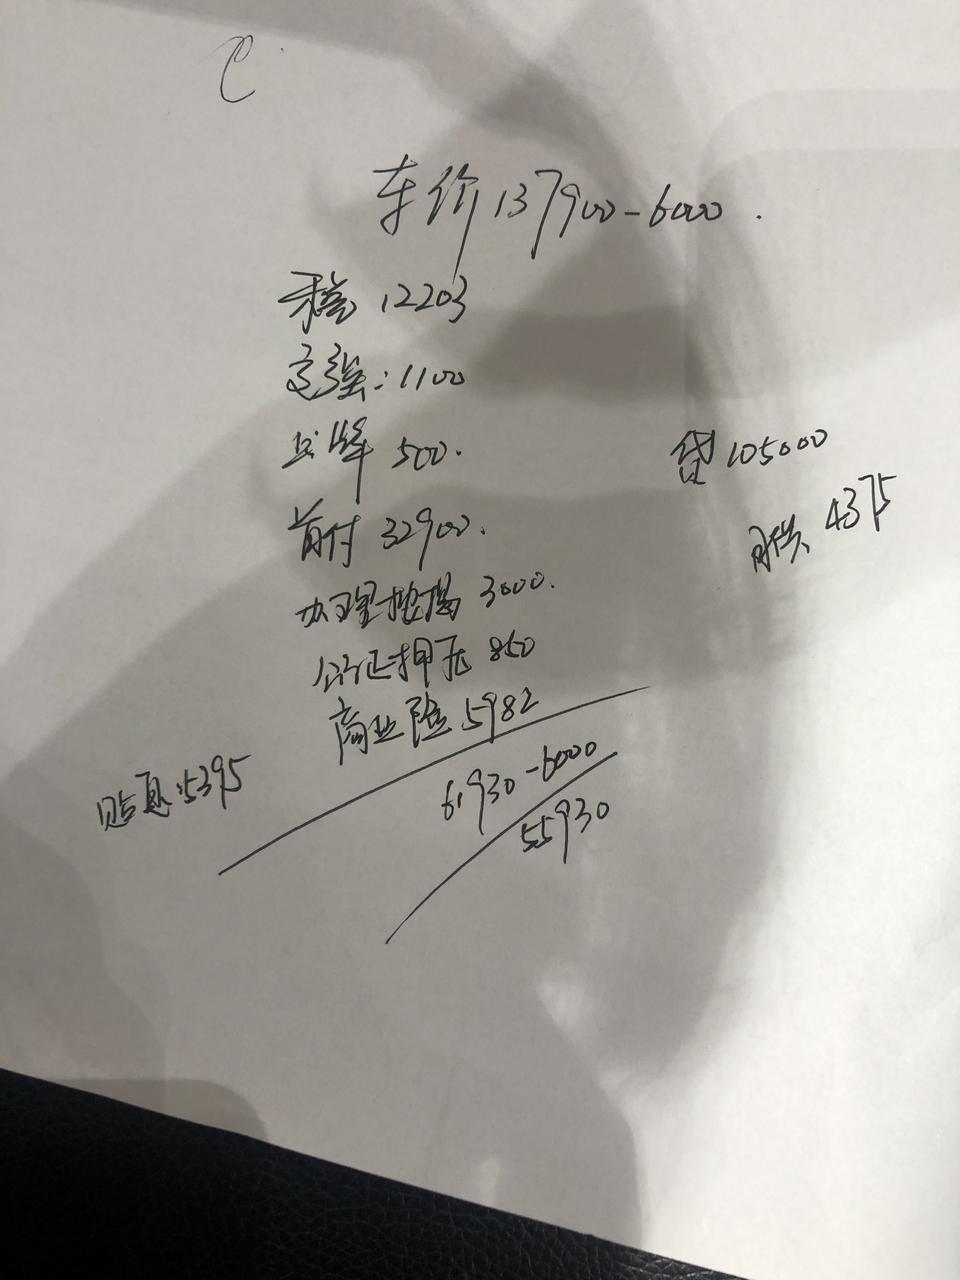 C
车价 137900-6000.
税 12203
交强: 1100
上牌 500.
贷 105000
首付 32900.
月供 4375
办理按揭 3000.
公证押金 850
商业险 5982
贴息: 5395
61930-6000
55930